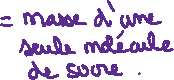 = masse d'une
seule molécule
de sucre.